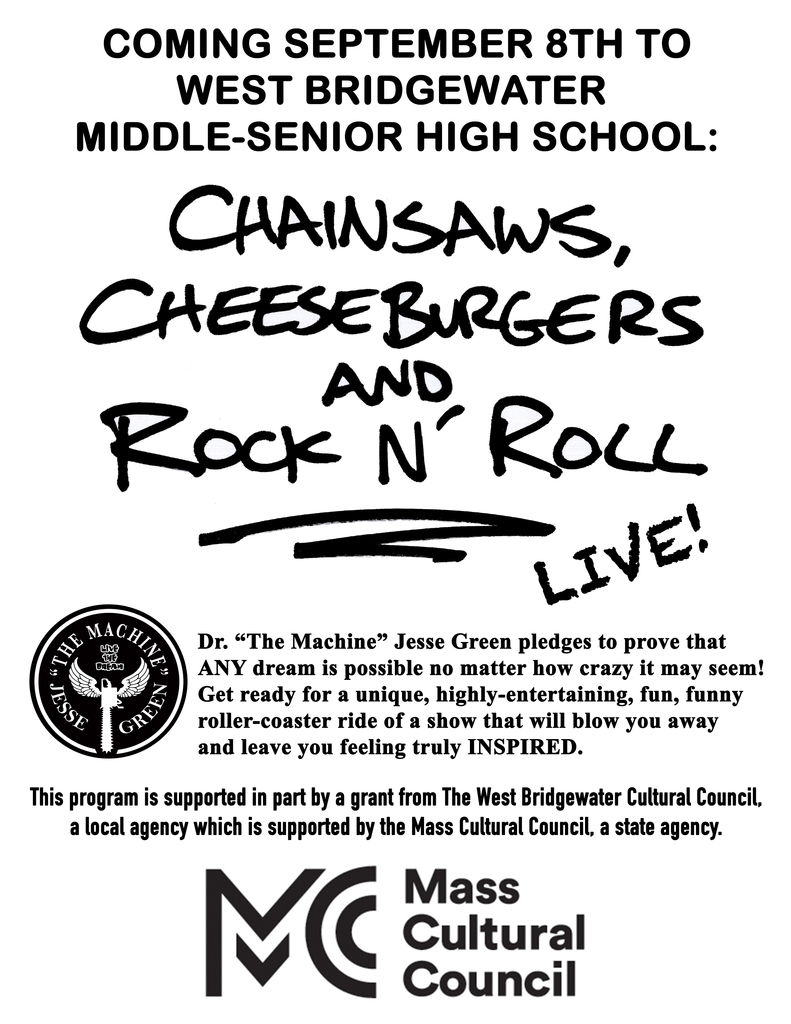 COMING SEPTEMBER 8TH TO
WEST BRIDGEWATER
MIDDLE-SENIOR HIGH SCHOOL:
CHAINSAWS,
CHEESEBURGERS
AND
ROCK N' ROLL
LIVE!
"THE MACHINE"
LIVE
THE
DREAM
JESSE GREEN
Dr. “The Machine” Jesse Green pledges to prove that
ANY dream is possible no matter how crazy it may seem!
Get ready for a unique, highly-entertaining, fun, funny
roller-coaster ride of a show that will blow you away
and leave you feeling truly INSPIRED.
This program is supported in part by a grant from The West Bridgewater Cultural Council,
a local agency which is supported by the Mass Cultural Council, a state agency.
MCC
Mass
Cultural
Council